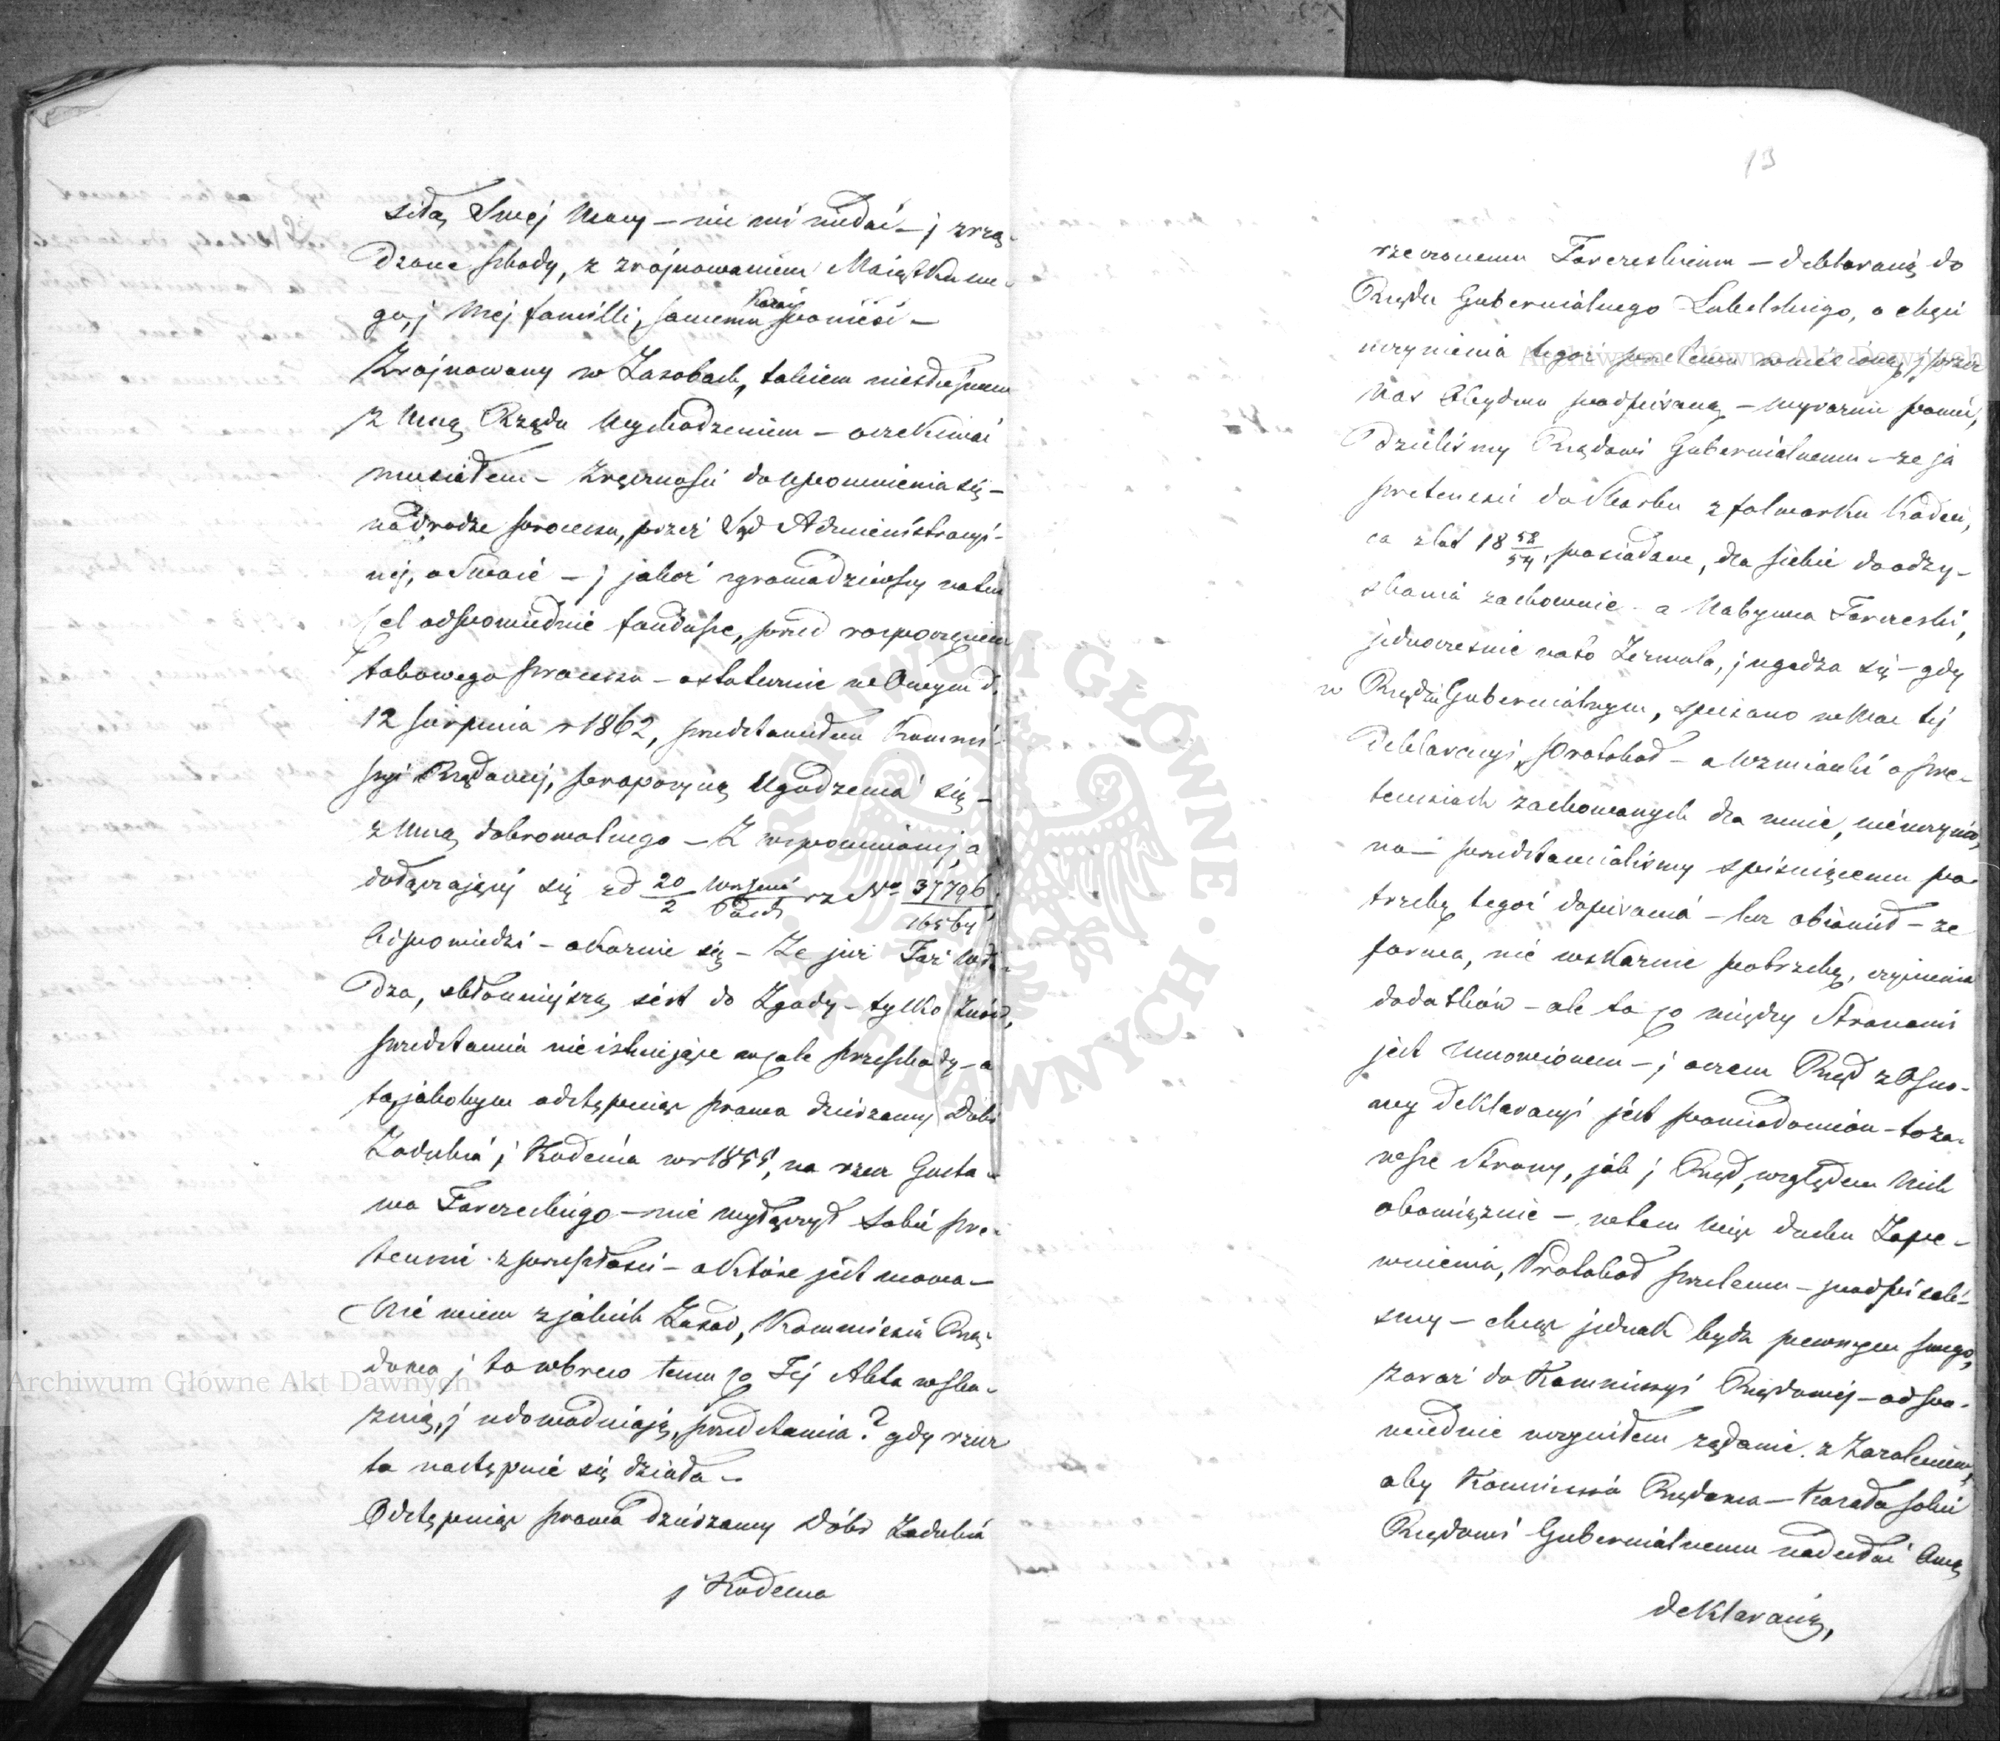 siłą Swej Mocy – nic mi niedać – j zrzą-
dzone szkody, z zrójnowaniem Maiątku me-
go, j Mej familli, samemu Kazać ponieść –
Zrójnowany w Zasobach, takiem niesłusznem
z Mną Rządu Wychodzeniem – oczekiwać
musiałem – Zręczności do Upomnienia się –
na drodze processu, przez Sąd Administracyi-
nej, o Swoie – j jakoż zgromadziwszy na ten
Cel odpowiednie fundusze, przed rozpoczęciem
takowego processu – ostatecznie we Onym d.
12 sierpnia r 1862, przedstawiłem Kommi-
ssyi Rządowej, propozycyą Ugodzenia się –
z Mną dobrowolnego – Z wspomnionej, a
dołączającej się zd 20/2 Wrześnià/Paźdź rz No 37796/16564
Odpowiedzi – okazuie się – Że już Taż Wła-
dza, skłonniejszą iest do Zgody – tylko
przedstawia nieistniejące wcale przeszkody – a
to, jakobym odstępuiąc prawa dzierżawy Dóbr
Zadubia j Kodeńca w r 1855, na rzecz Gusta-
wa Tarczeckiego – nie wyłączył Sobie pre-
tensii z przeszłości – o które jest mowa –
Nie wiem z jakich Zasad, Kommissià Rzą-
dowa j to wbrew temu co Jej Akta wska-
zuią, j udowadniają, przedstawia? gdy rzecz
ta następnie się działa –
Odstępuiąc prawa dzierżawy Dóbr Zadubia
j Kodeńca
13
rzeczonemu Tarczeckiemu – deklaracią do
Rządu Gubernialnego Lubelskiego, o chęci
uczynienia tegoż przelewu wniesioną, j przez
Nas Obydwu podpisaną – Wyraźnie powie-
dzieliśmy Rządowi Gubernialnemu – że ja
pretensii do Skarbu z folwarku Kodeń-
ca z lat 18 53/54, posiadane, dla siebie do odzy-
skania zachowuie – a Nabywca Tarczecki,
jednocześnie na to Zezwala, j ugadza się – gdy
w Rządzie Gubernialnym, spisano w Moc tej
Deklaracyi, Protokoł – a wzmianki o pre-
tensiach zachowanych dla mnie, nieuczynio-
no – przedstawialiśmy spisuiącemu po-
trzebę tegoż dopisania – lecz obiawił – że
forma, nie wskazuie potrzeby, czynienia
dodatków – ale to co między Stronami
jest Umowionem – j oczem Rząd z Osno-
wy Deklaracyi jest powiadomion – to za-
wsze Strony, jak j Rząd, względem Nich
obowiązuie – w tem więc duchu Zape-
wnienia, Protokoł przelewu – podpisali-
smy – chcąc jednak bydź pewnym swego,
zaraz do Kommissyi Rządowej – odpo-
wiednie uczyniłem żądanie z Zaraleniem,
aby Kommissià Rządowa – Kazała sobie
Rządowi Gubernialnemu nadesłać Ową
deklaracią,
Archiwum Główne Akt Dawnych
Archiwum Główne Akt Dawnych
ARCHIWUM GŁÓWNE AKT DAWNYCH